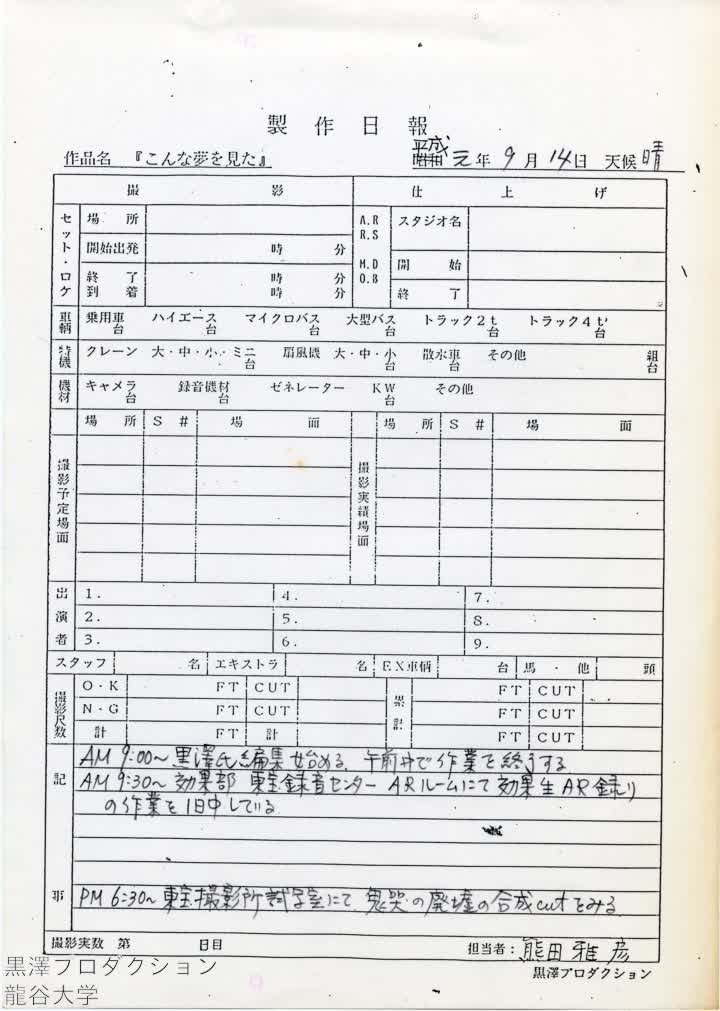 製作日報
作品名 『こんな夢を見た』 平成 昭和 元年 9月 14日 天候 晴
撮影 仕上げ
セット・ロケ 場所 A.R R.S M.D O.B スタジオ名
開始出発 時 分
開始
終了 時 分
到着 時 分
終了
車輌 乗用車 台 ハイエース 台 マイクロバス 台 大型バス 台 トラック2t 台 トラック4t 台
特機 クレーン 大・中・小・ミニ 台 扇風機 大・中・小 台 散水車 台 その他 組 台
機材 キャメラ 台 録音機材 台 ゼネレーター KW 台 その他
撮影予定場面 場所 S# 場面 撮影実績場面 場所 S# 場面
出演者 1. 4. 7.
2. 5. 8.
3. 6. 9.
スタッフ 名 エキストラ 名 EX車輌 台 馬・他 頭
撮影尺数 O・K FT CUT 累計 FT CUT
N・G FT CUT FT CUT
計 FT 計 FT CUT
記事
AM 9:00〜黒澤氏編集始める。午前中で作業を終了する
AM 9:30〜効果部 東宝録音センター ARルームにて効果生AR録り
の作業を1日中している
PM 6:30〜東宝撮影所試写室にて、鬼哭の廃墟の合成cutをみる
撮影実数 第 日目 担当者:熊田雅彦
黒澤プロダクション
黒澤プロダクション
龍谷大学